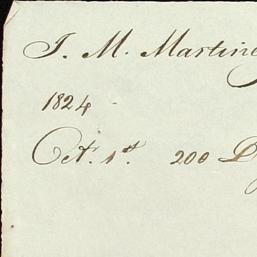 J. M. Martine
1824
Oct. 1st. 200